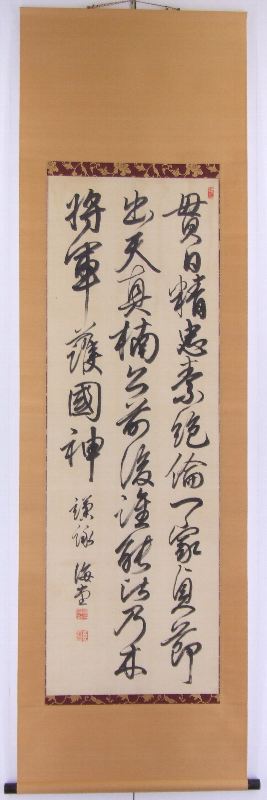 貫日精忠素絶倫一家貞節
出天真楠公前後誰能比乃木
将軍護國神
謹詠 海堂